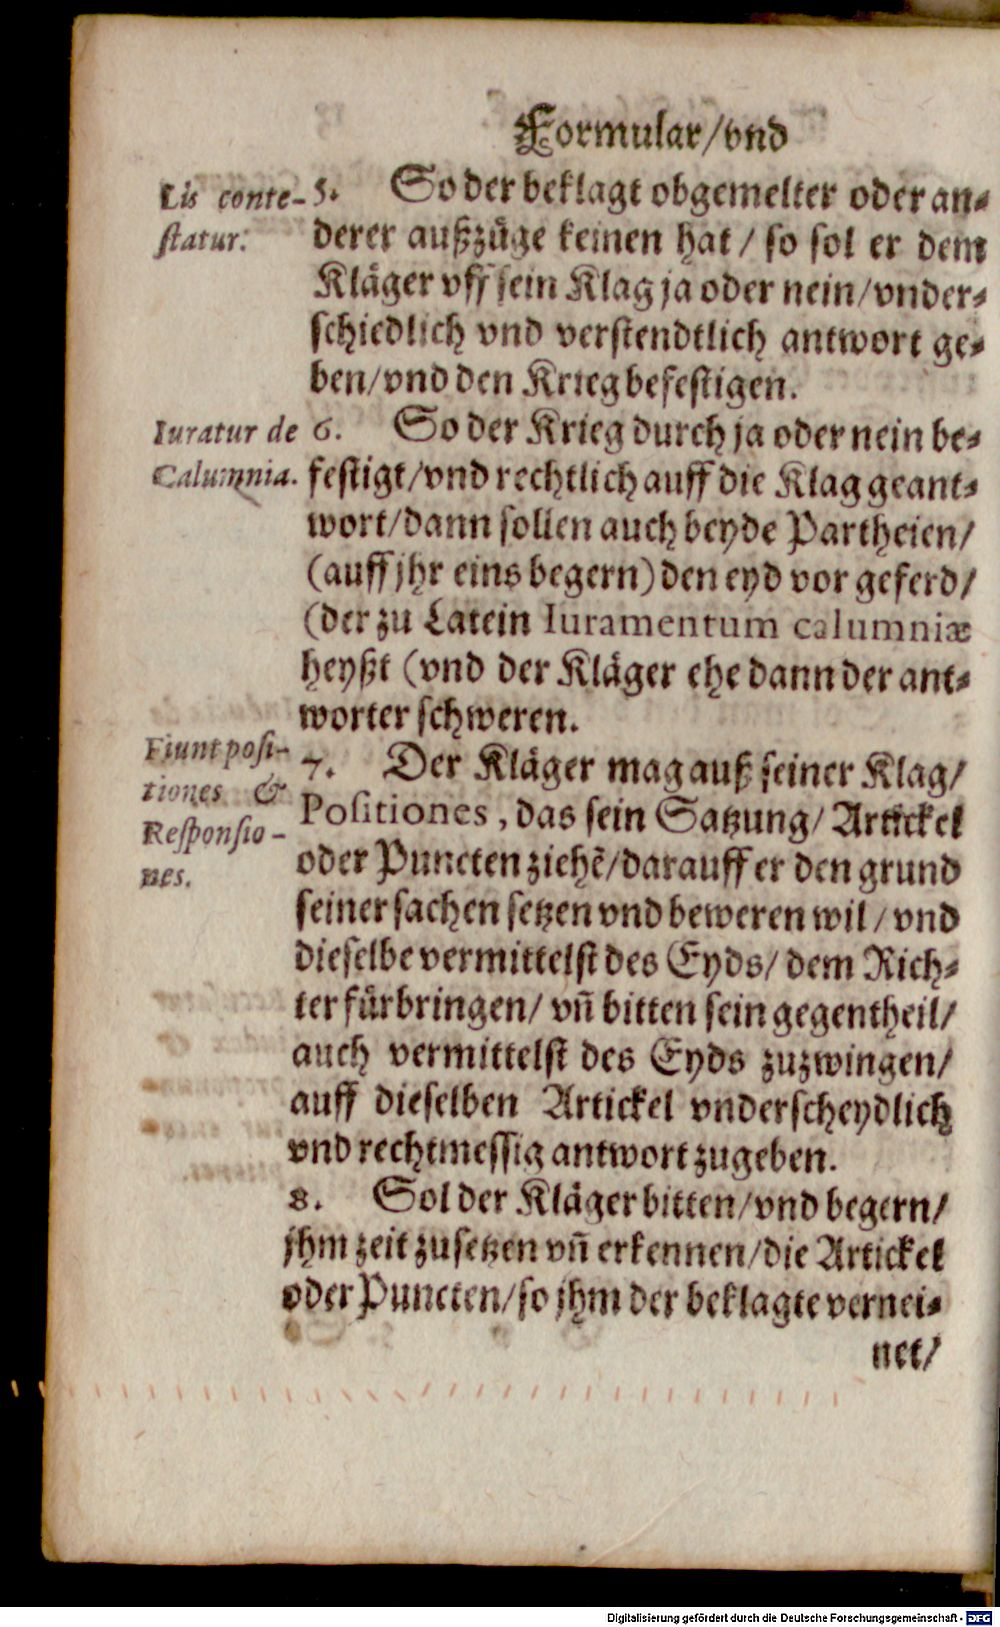 Formular/vnd
Lis conte-
statur.
5. So der beklagt obgemelter oder an-
derer außzůge keinen hat / so sol er dem
Kläger vff sein Klag ja oder nein/vnder-
schiedlich vnd verstendtlich antwort ge-
ben/vnd den Krieg befestigen.
Iuratur de
Calumnia.
6. So der Krieg durch ja oder nein be-
festigt/vnd rechtlich auff die Klag geant-
wort/dann sollen auch beyde Partheien/
(auff jhr eins begern) den eyd vor geferd/
(der zu Latein Iuramentum calumniæ
heyßt (vnd der Kläger ehe dann der ant-
worter schweren.
Fiunt posi-
tiones &
Responsio-
nes.
7. Der Kläger mag auß seiner Klag/
Positiones, das sein Satzung/ Artickel
oder Puncten ziehẽ/darauff er den grund
seiner sachen setzen vnd beweren wil / vnd
dieselbe vermittelst des Eyds/ dem Rich-
ter fůrbringen/ vñ bitten sein gegentheil/
auch vermittelst des Eyds zuzwingen/
auff dieselben Artickel vnderscheydlich
vnd rechtmessig antwort zugeben.
8. Sol der Kläger bitten/vnd begern/
jhm zeit zusetzen vñ erkennen/die Artickel
oder Puncten/so jhm der beklagte vernei-
net/
Digitalisierung gefördert durch die Deutsche Forschungsgemeinschaft - DFG